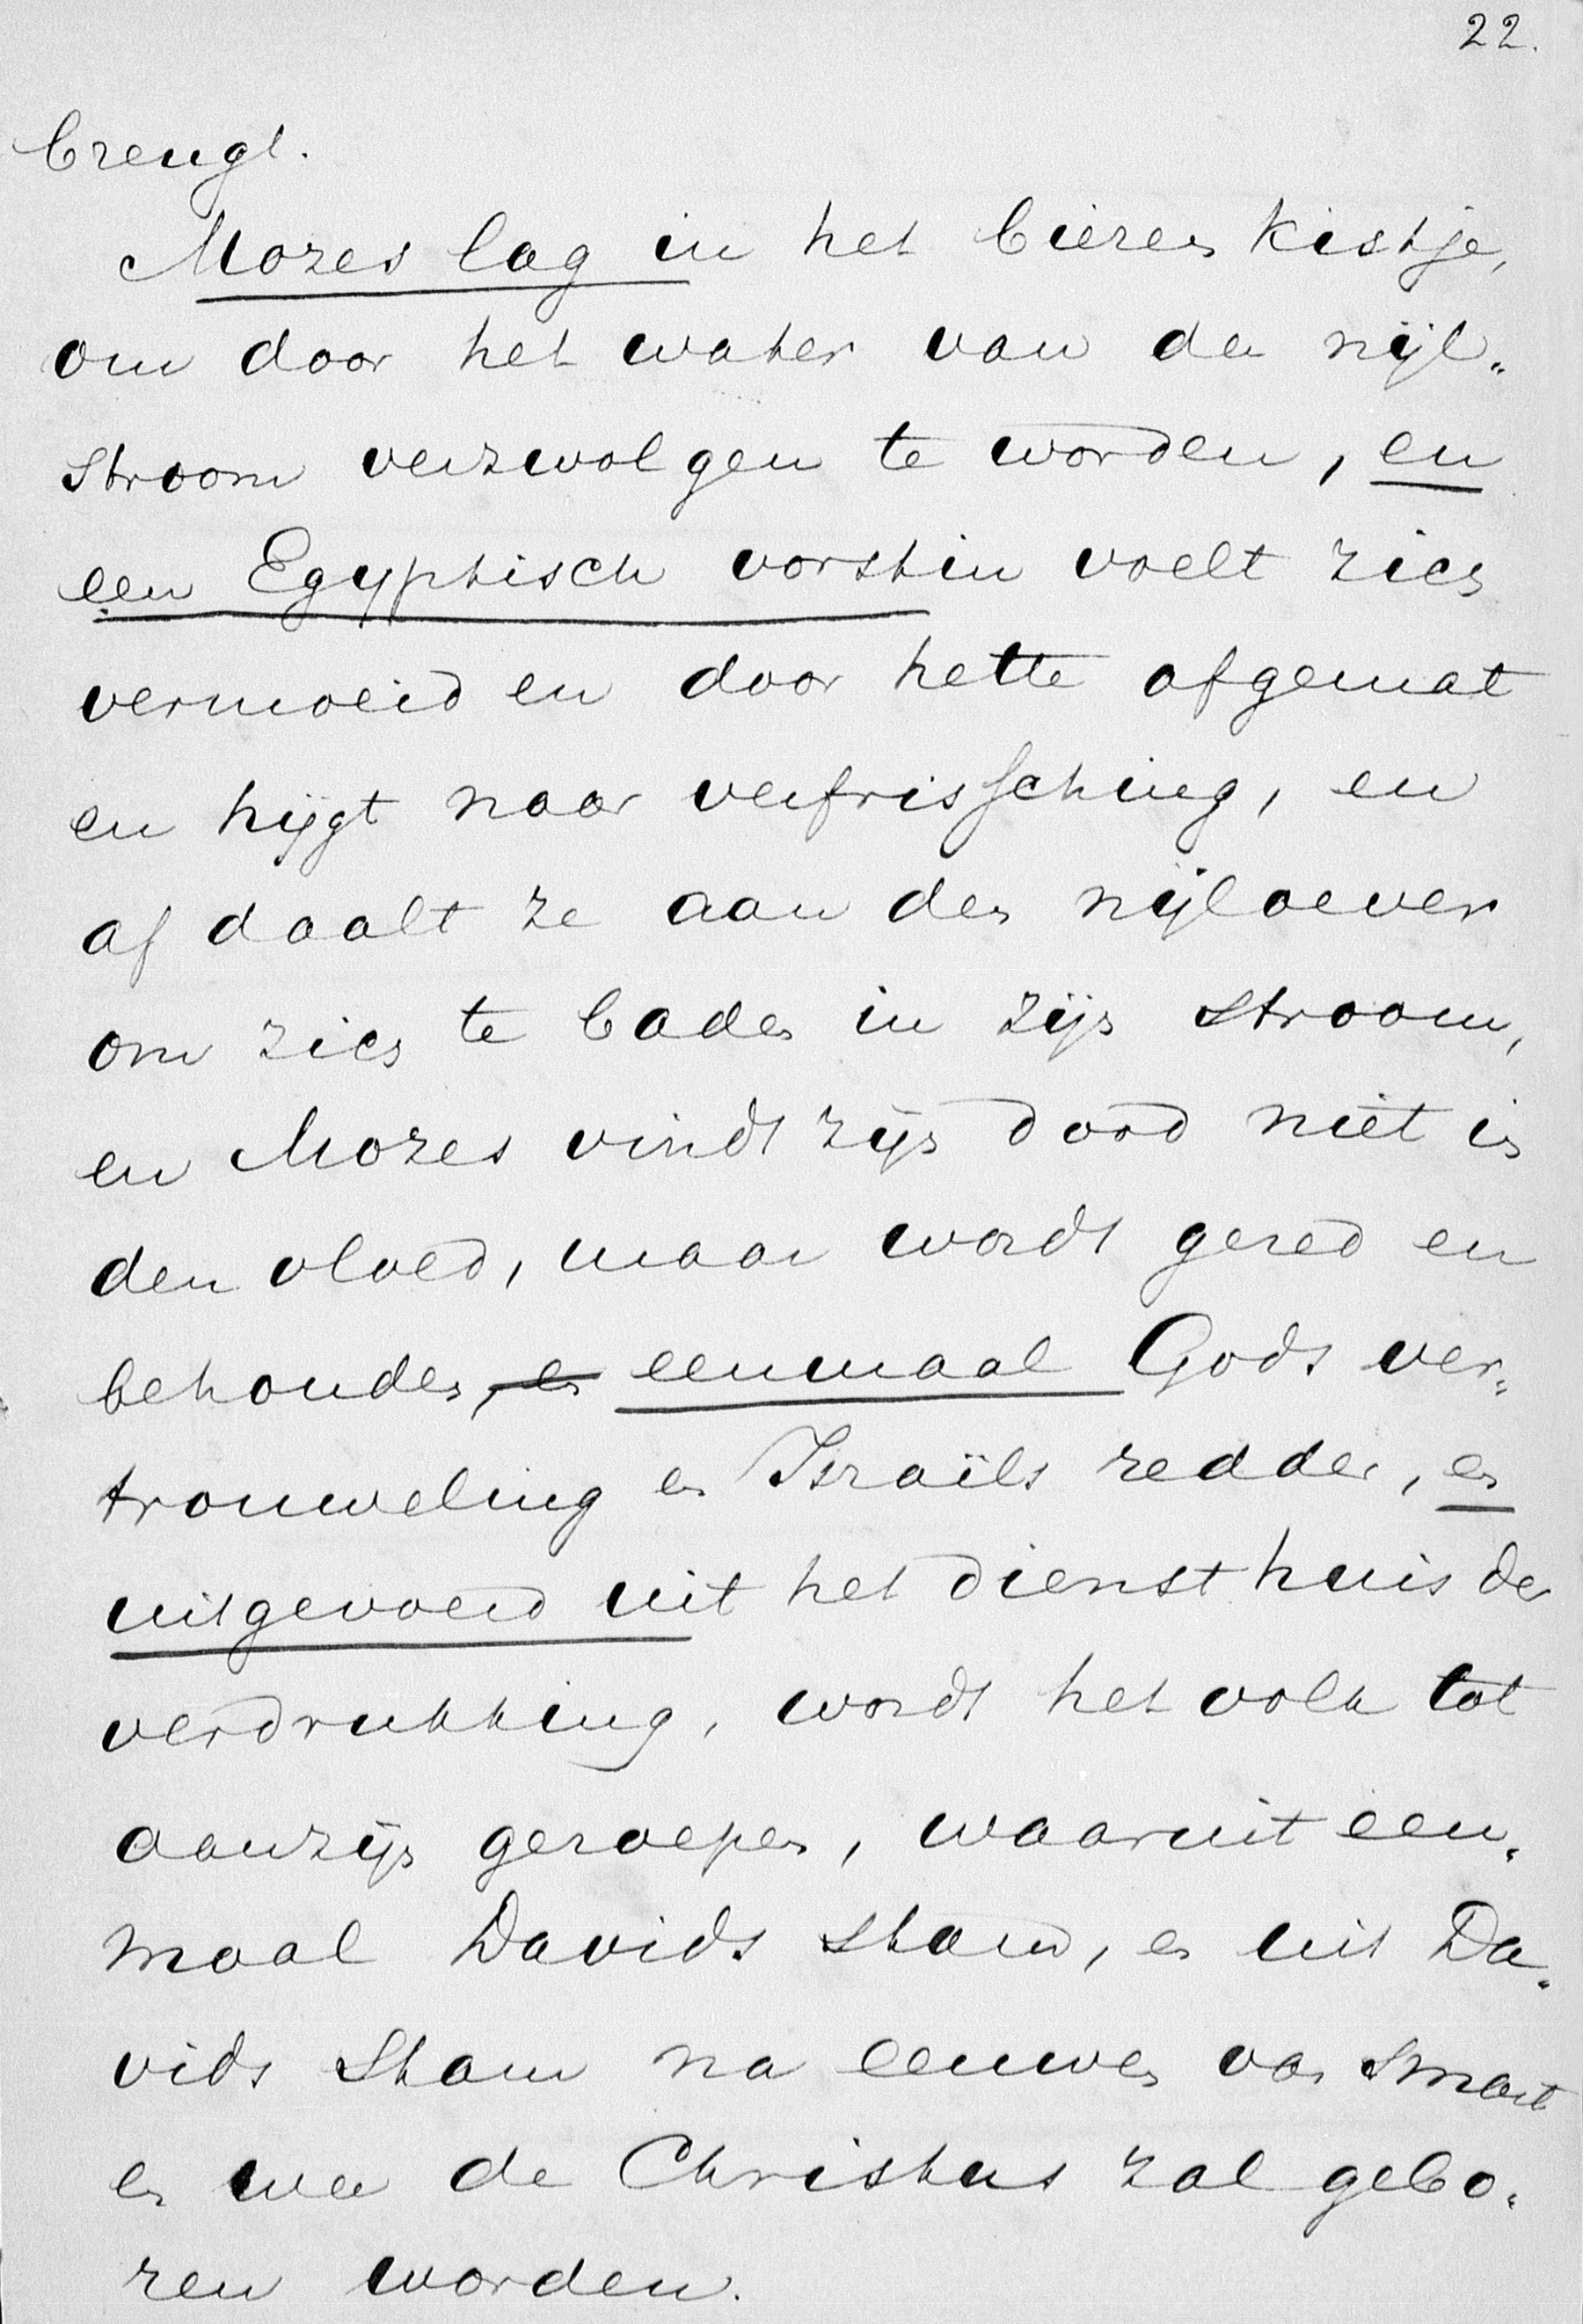 22.
brengt.
Mozes lag in het biezen kistje,
om door het water van den nijl„
stroom verzwolgen te worden, en
een Egyptisch vorstin voelt zich
vermoeid en door hette afgemat
en hijgt naar verfrissching, en
af daalt ze aan den nijloever
om zich te baden in zijn stroom,
en Mozes vindt zijn dood niet in
den vloed, maar wordt gered en
behouden, en eenmaal Gods ver„
trouweling en Israëls redder, en
uitgevoerd uit het diensthuis der
verdrukking, wordt het volk tot
aanzijn geroepen, waaruit een„
maal Davids stam, en uit Da„
vids stam na eeuwen van smart
en wee de Christus zal gebo„
ren worden.